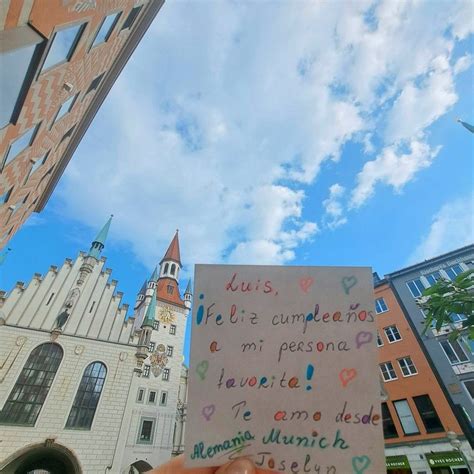 Luis,
¡Feliz cumpleaños
a mi persona
favorita!
Te amo desde
Alemania Munich
Joselyn
YVES ROCHER